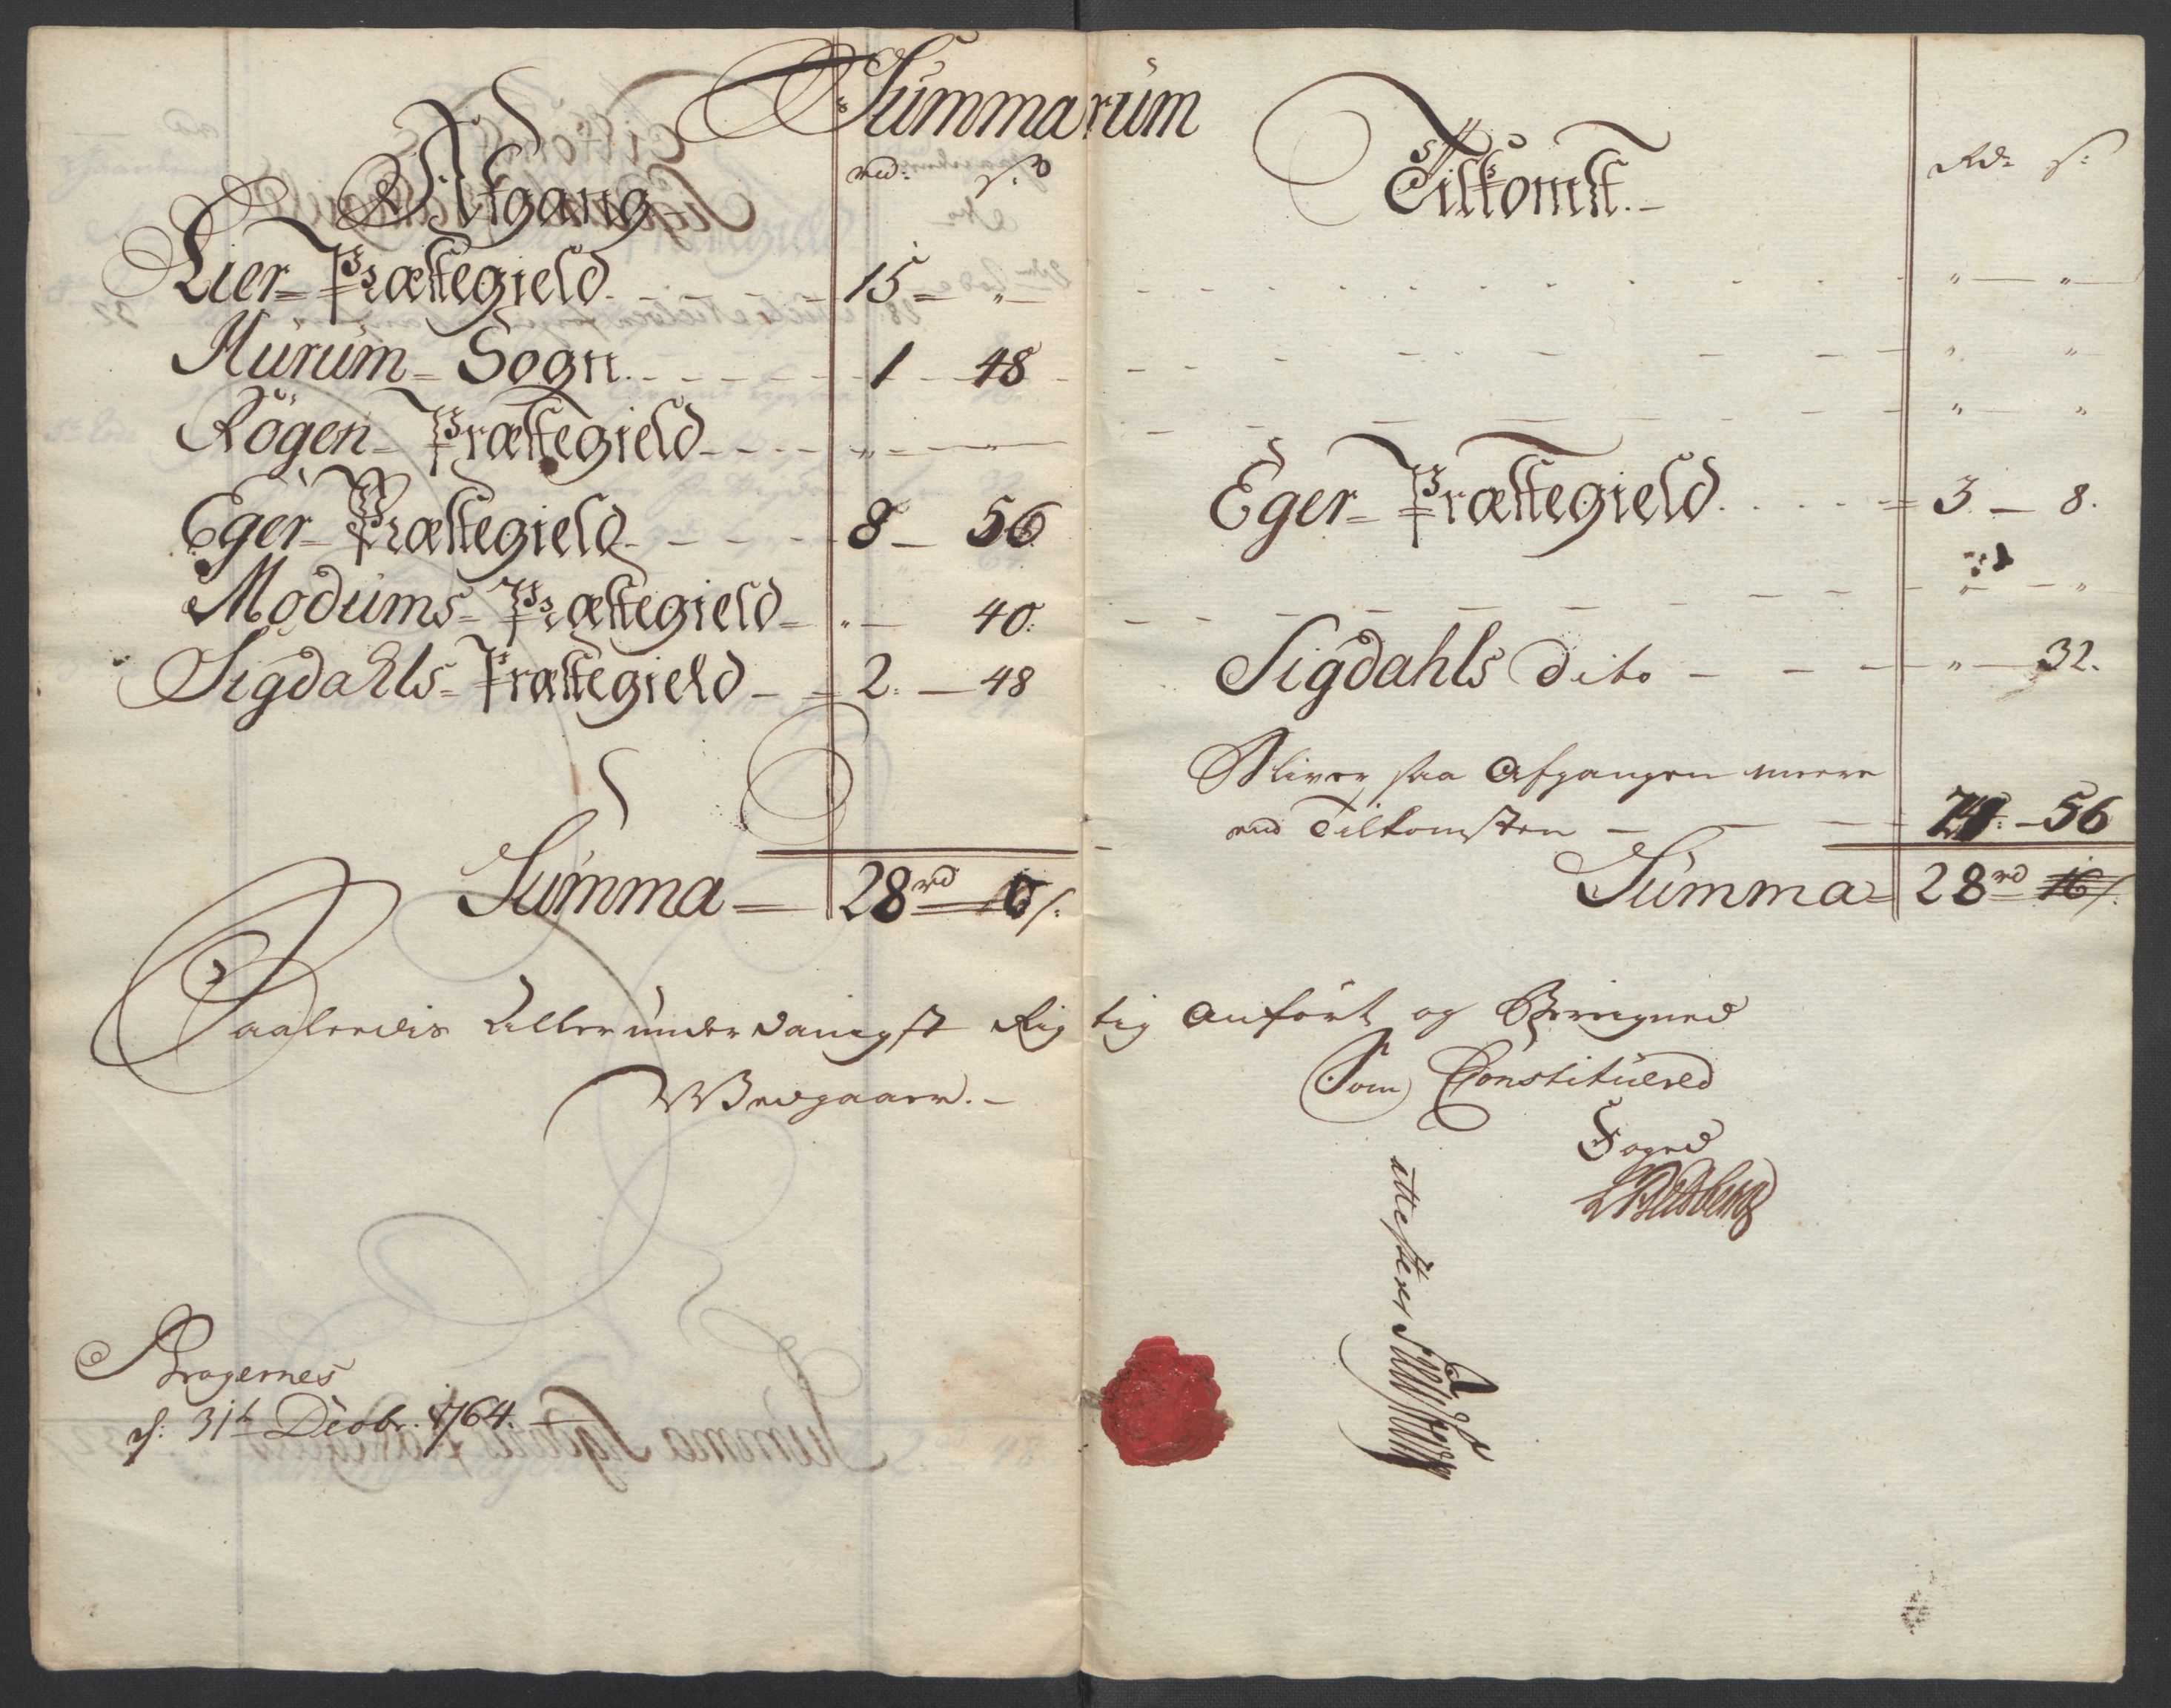 Summarum
Afgang
rd: s:
Lier Præstegield 15 "
Hurum Sogn 1 48
Rögen Præstegield " "
Eger Præstegield 8 56
Modums Præstegield " 40:
Sigdahls Præstegield 2: 48
Summa 28 rd 16 s:
Tilkomst.
Rd: s:
" "
" "
" "
Eger Præstegield 3 8.
" "
Sigdahls Dito " 32.
Bliver saa Afgangen meere
end Tilkomsten 24: 56
Summa 28 rd 16 s:
Saaledis Allerunderdanigst Rigtig Anført og Beregned
Som Constituered
Foged
attesterer
Bragernes
d: 31te Decbr: 1764.